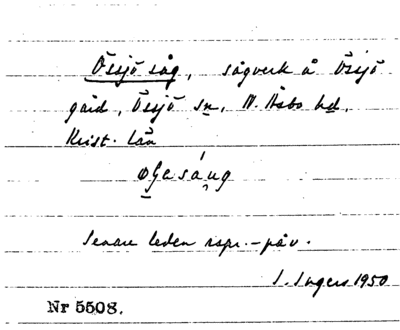 Össjö såg, sågverk å Össjö
gård, Össjö sn, N. Åsbo hd,
Krist. län
Senare leden rspr.-påv.
I. Ingers 1950
Nr 5508.